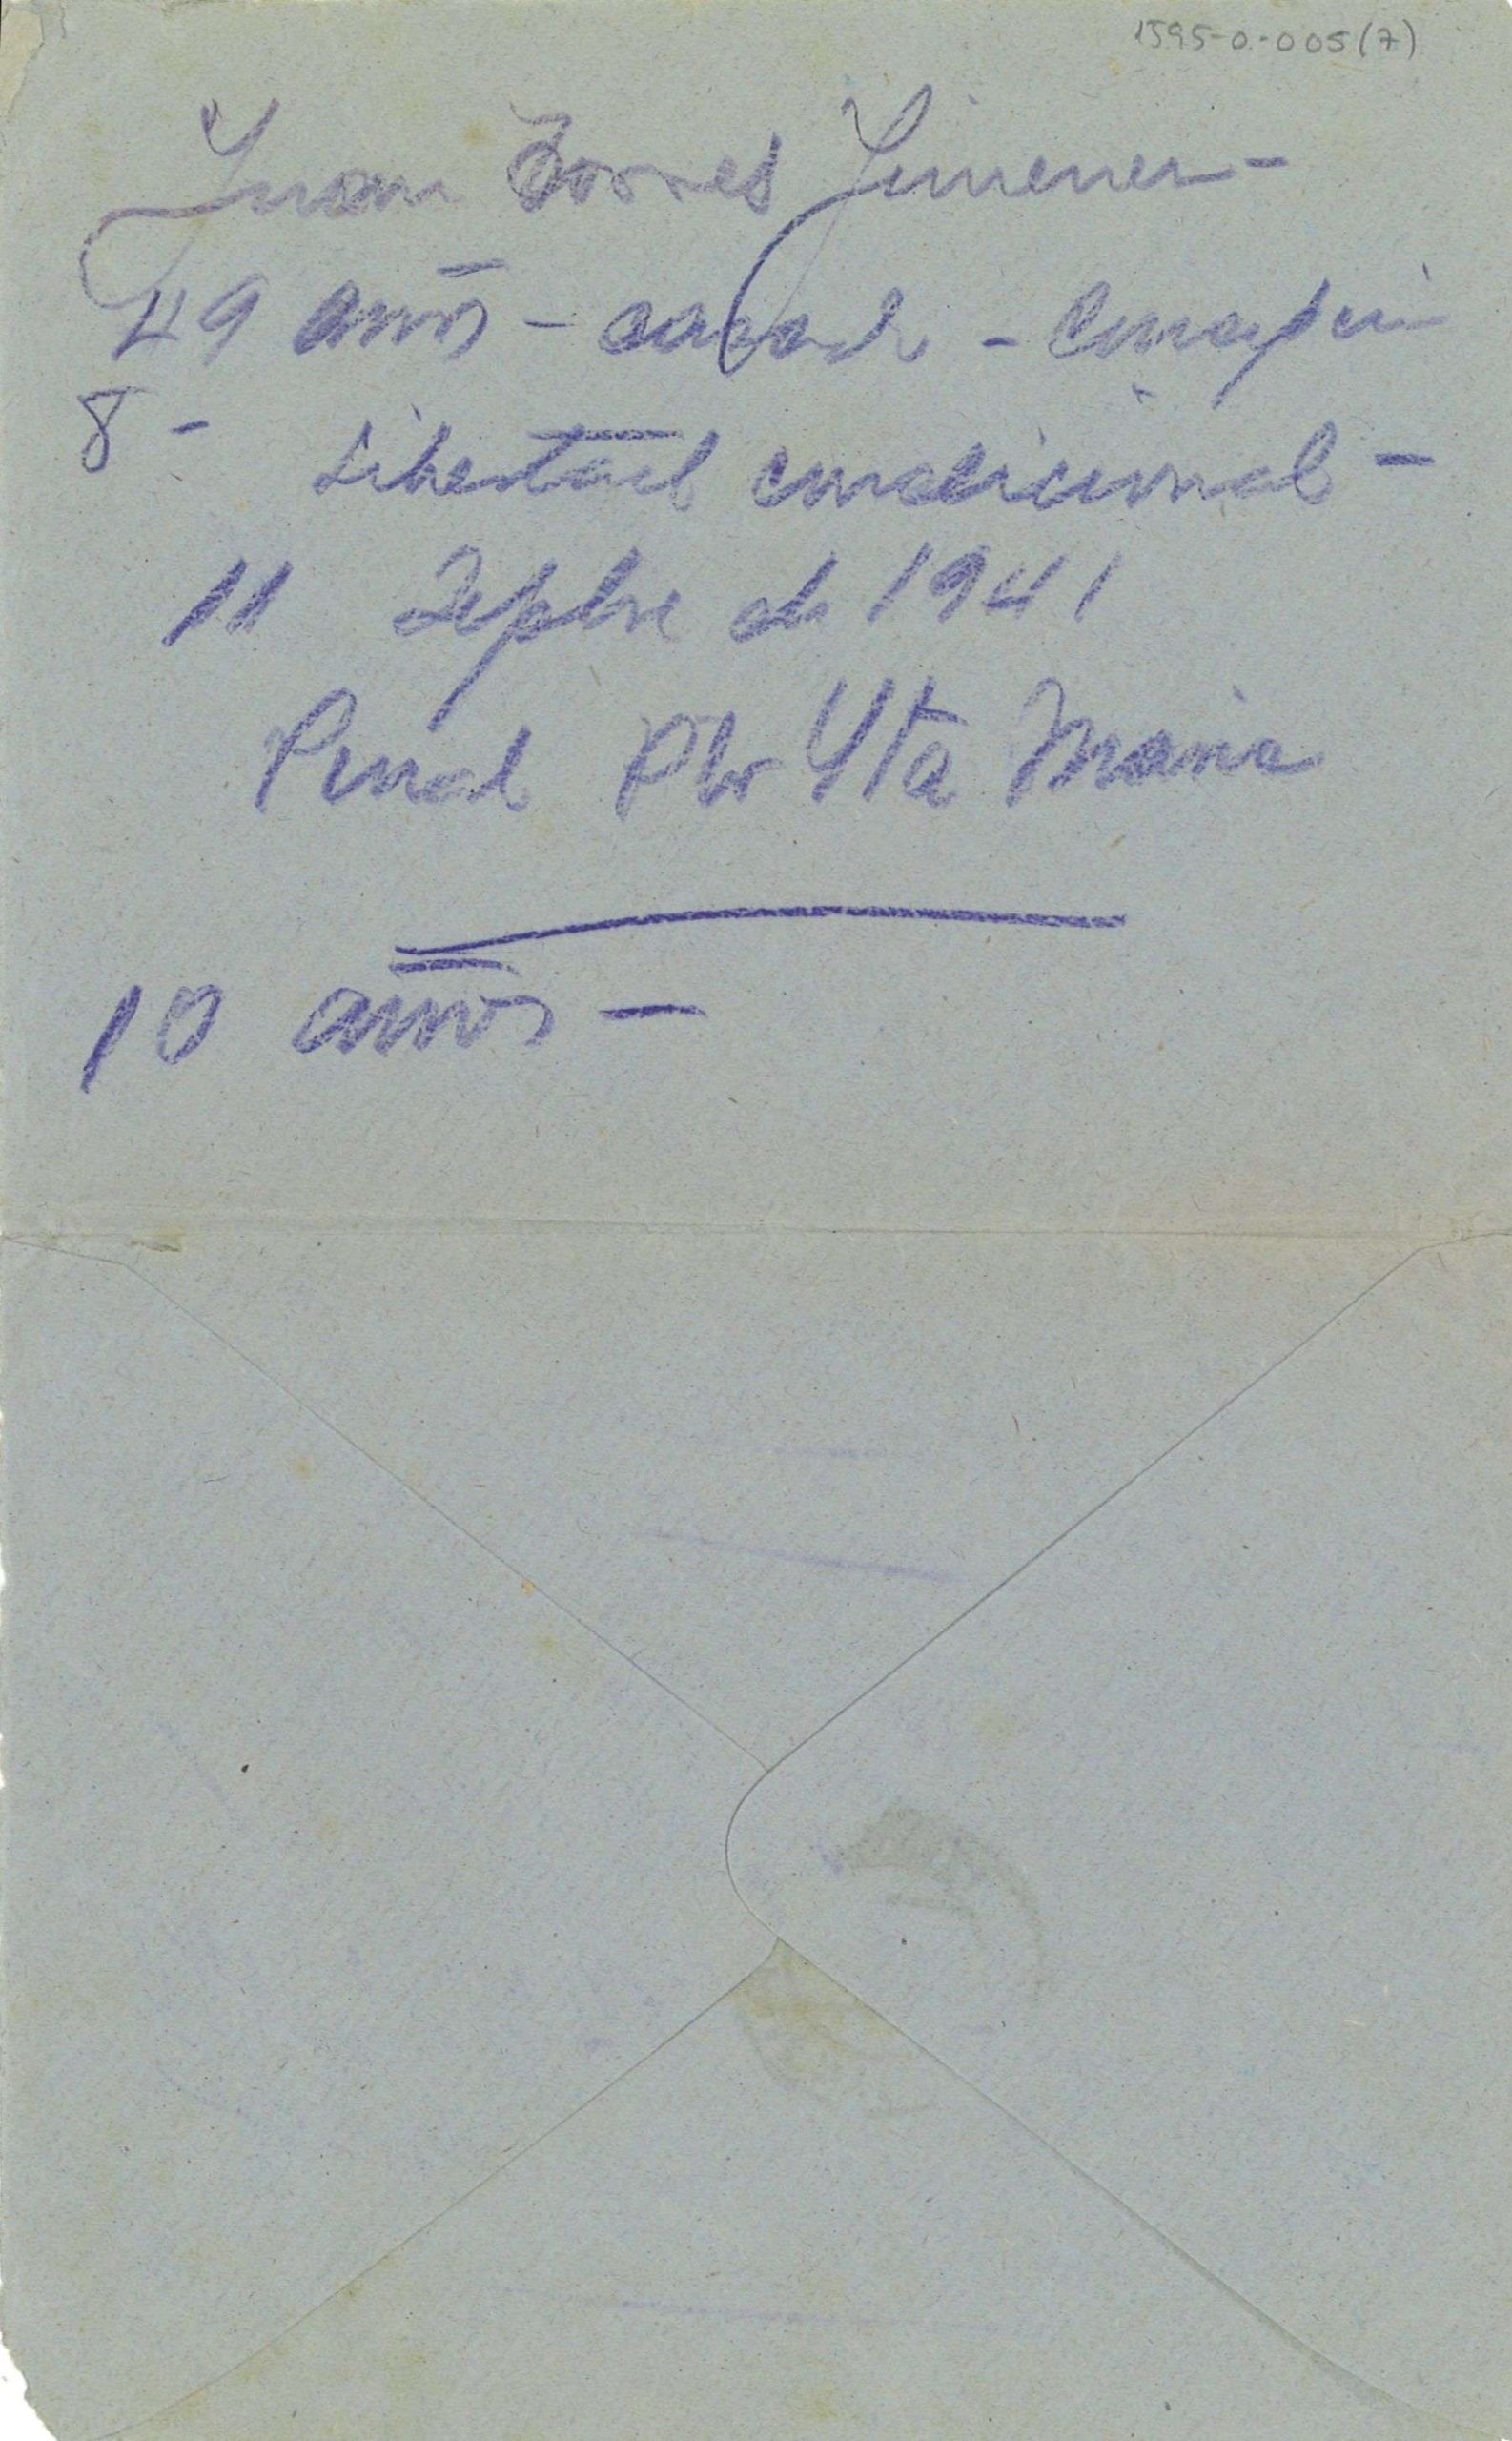 1595-0-005(7)
Juan Torres Jimenez -
49 años - casado -
8 - Libertad condicional -
11 Sepbre de 1941
Penal Pto Sta Maria
10 años -